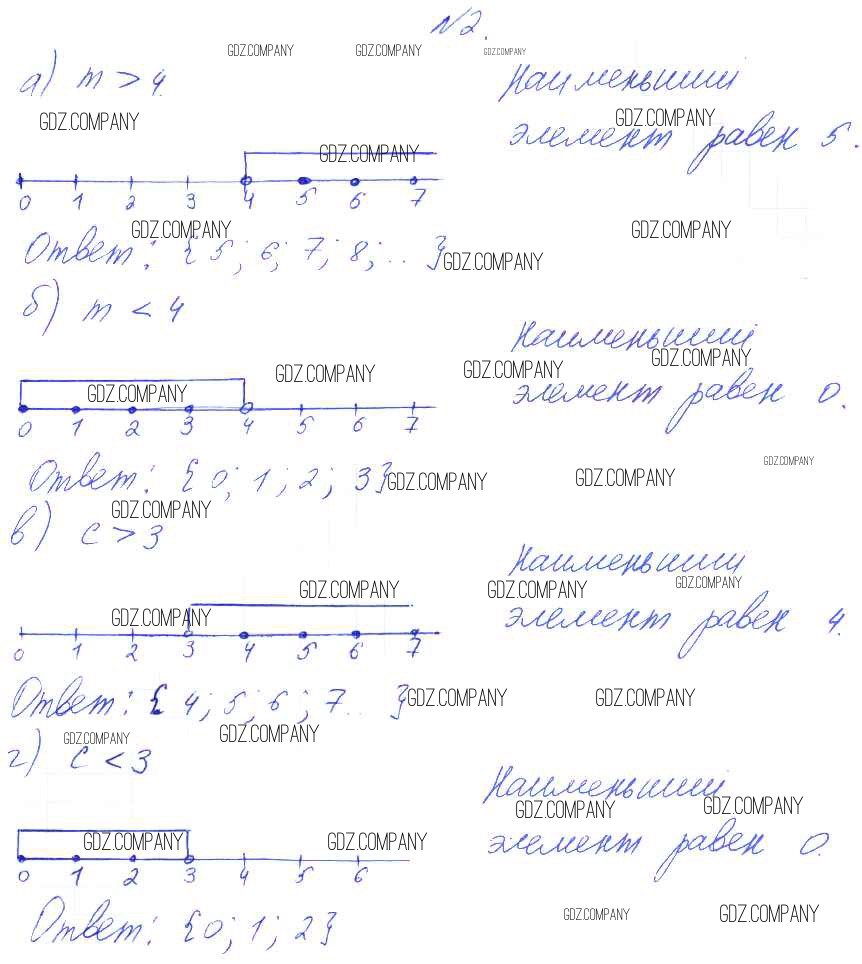 №2.
GDZ.COMPANY GDZ.COMPANY GDZ.COMPANY
а) m > 4.
Наименьший
GDZ.COMPANY GDZ.COMPANY
элемент равен 5.
GDZ.COMPANY
0 1 2 3 4 5 6 7
GDZ.COMPANY GDZ.COMPANY
Ответ: {5; 6; 7; 8; ... }
GDZ.COMPANY
б) m < 4
Наименьший
GDZ.COMPANY GDZ.COMPANY GDZ.COMPANY
GDZ.COMPANY
элемент равен 0.
0 1 2 3 4 5 6 7
GDZ.COMPANY
Ответ: {0; 1; 2; 3}
GDZ.COMPANY GDZ.COMPANY
GDZ.COMPANY
в) c > 3
Наименьший
GDZ.COMPANY GDZ.COMPANY GDZ.COMPANY
GDZ.COMPANY
элемент равен 4.
0 1 2 3 4 5 6 7
Ответ: {4; 5; 6; 7... }
GDZ.COMPANY GDZ.COMPANY
GDZ.COMPANY GDZ.COMPANY
г) c < 3
Наименьший
GDZ.COMPANY GDZ.COMPANY
GDZ.COMPANY GDZ.COMPANY
элемент равен 0.
0 1 2 3 4 5 6
GDZ.COMPANY GDZ.COMPANY
Ответ: {0; 1; 2}